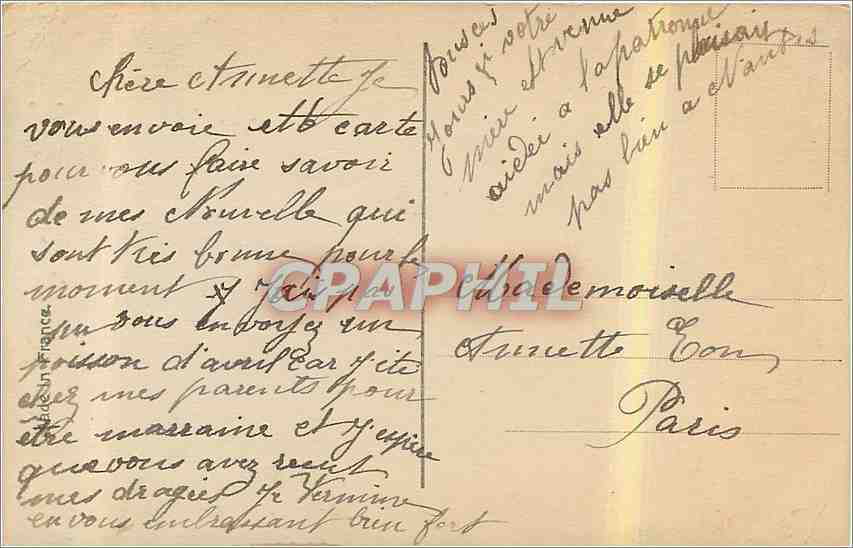 chère Annette Je
vous envoie ette carte
pour vous faire savoir
de mes Nouvelle qui
sont très bonne pour le
moment Je J'ais pas
pu vous envoyez un
poisson d'avril car J ite
chez mes parents pour
être marraine et J'espère
que vous avez recut
mes dragies Je Termine
en vous embrassant bien fort
Made in France
jours ji votre
mère est venue
aidée a la patronne
mais elle se plaisait
pas bien a Nantes
Mademoiselle
Annette Eon
Paris
CPAPHIL